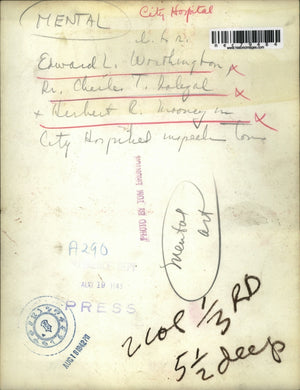 MENTAL
City Hospital
L. to R.
Edward L. Worthington
Dr. Charles T.
+ Herbert R. Mooney in
City Hospital inspection tour
PHOTO BY TOM
Mental
art
A290
REFERENCE DEPT
AUG 19 1943
PRESS
2 col 1/3 RD
5 1/2 deep